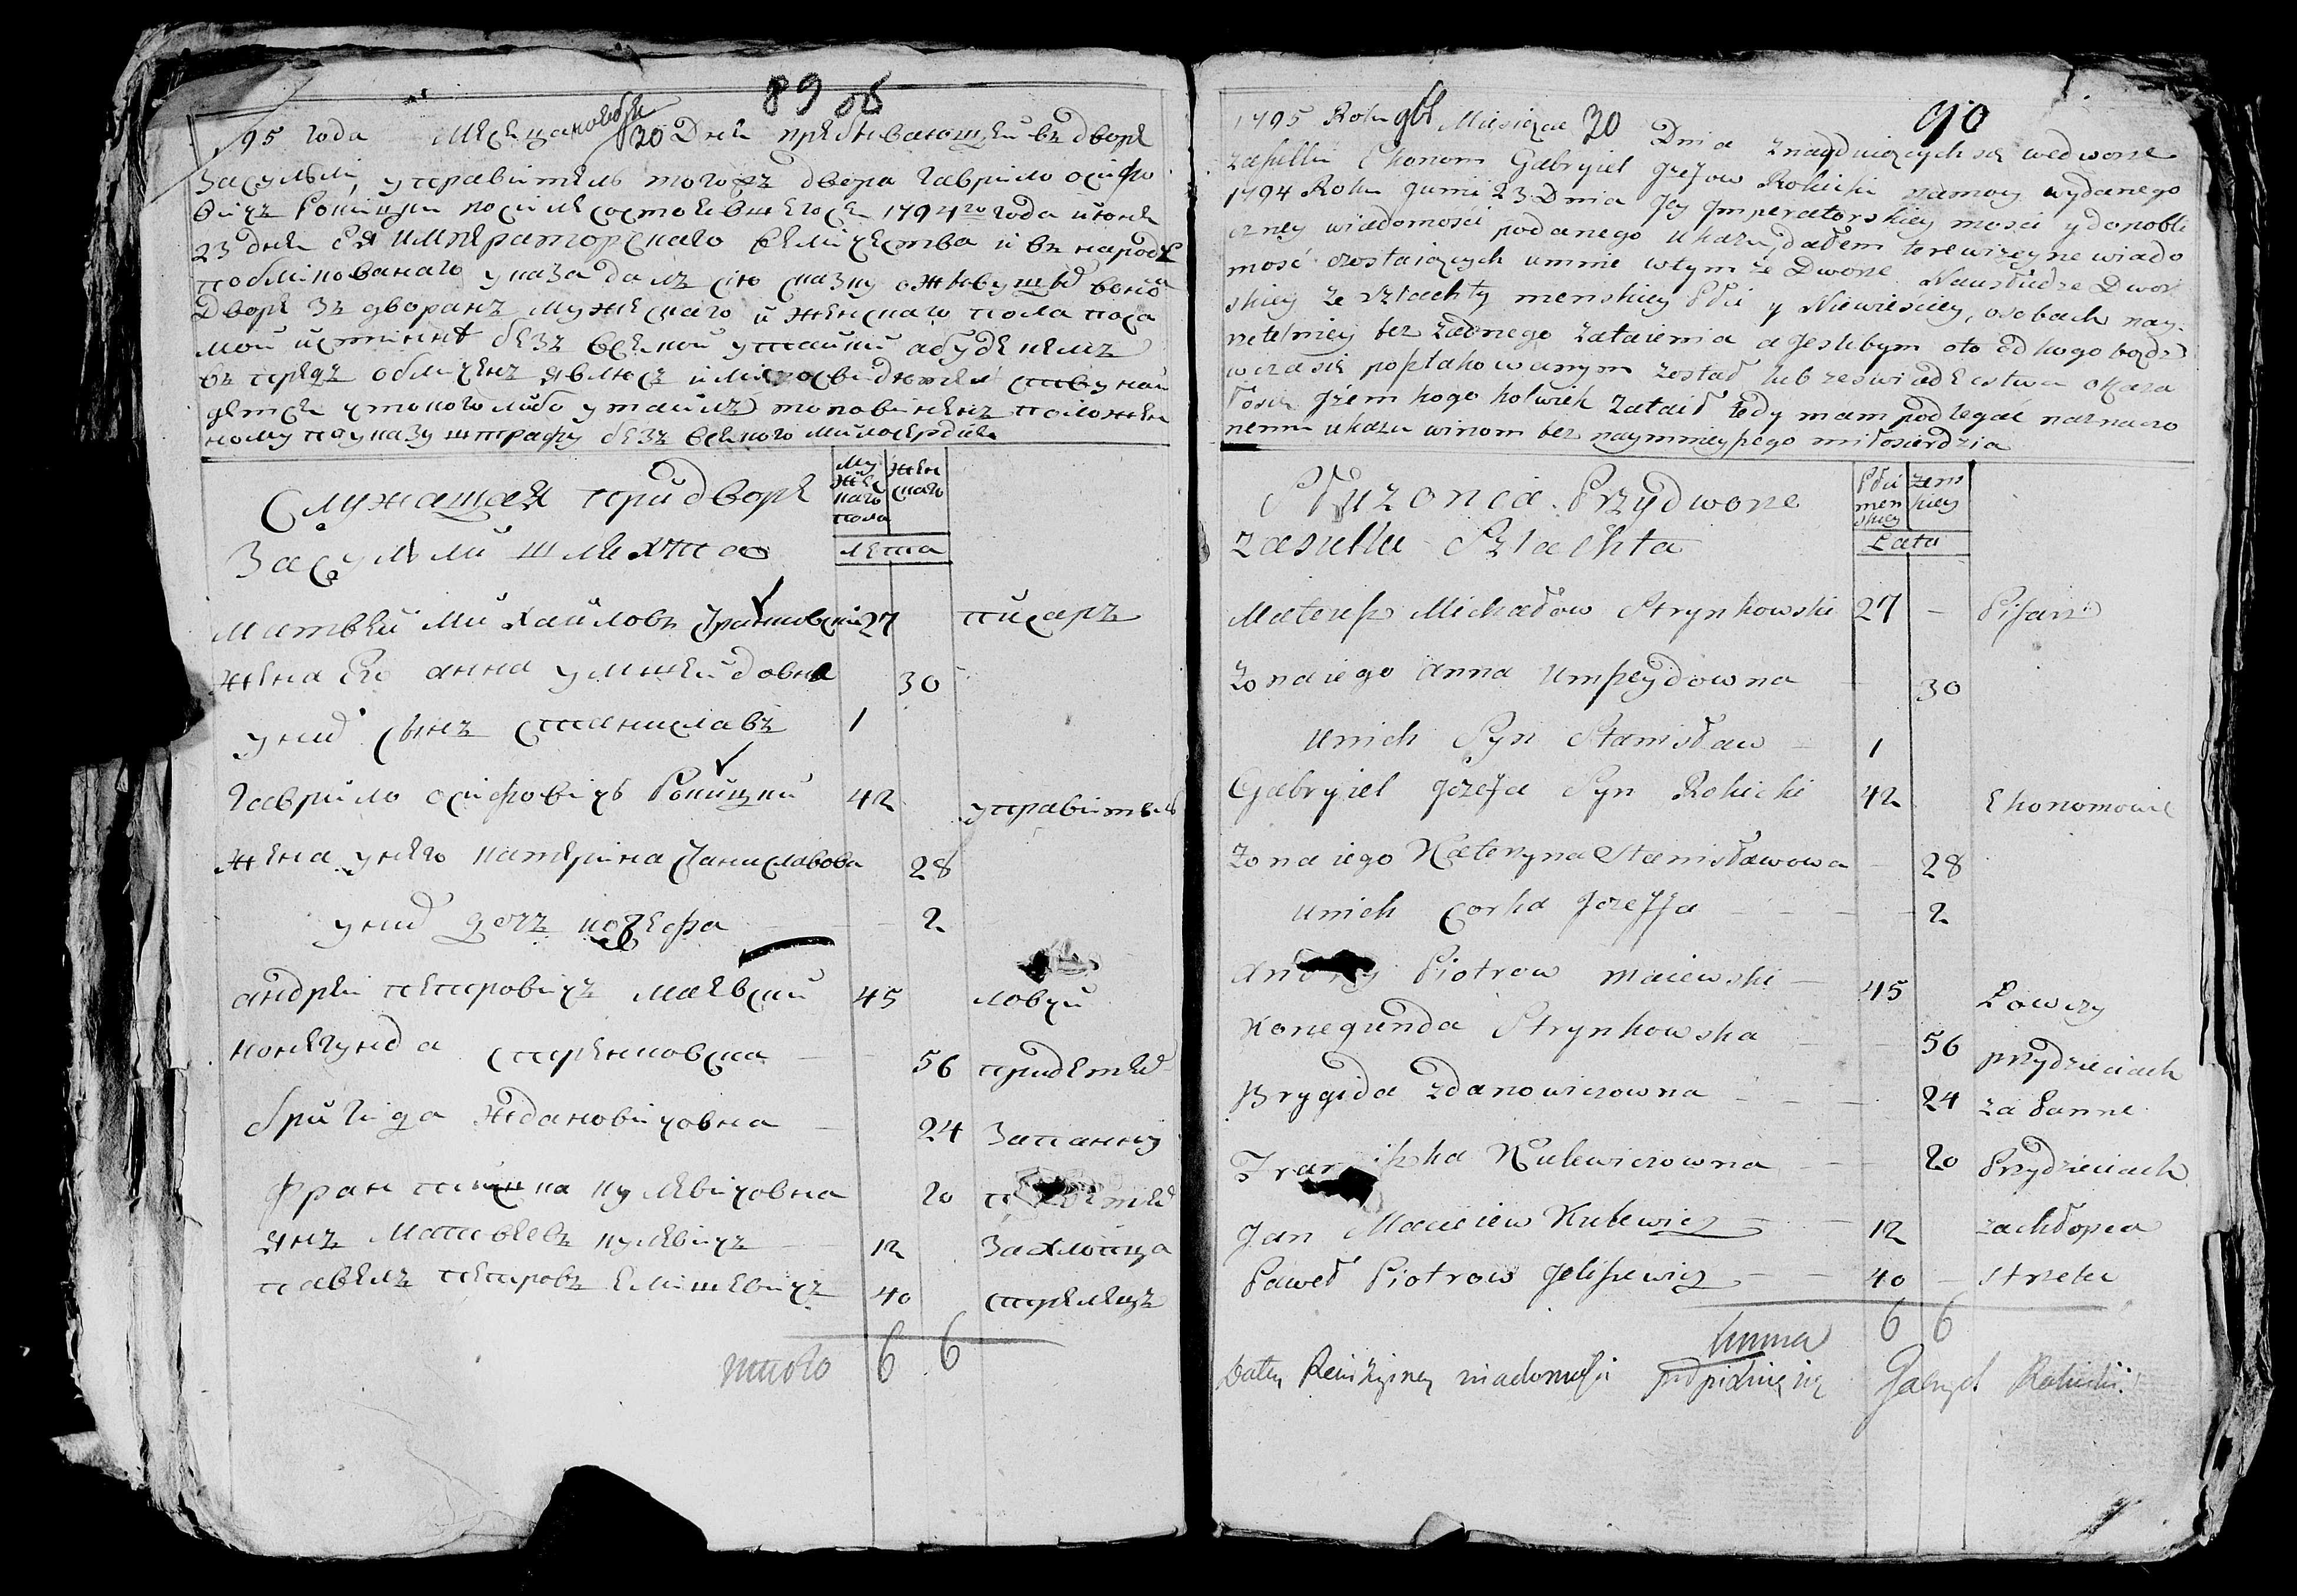 89 об
95 года Месеца ноебря 30 Дня пребивающей въ дворе
Засульи, управитель тогожъ двора Гаврило осифо
вичъ Рокицки после состоевшегося 1794го года июня
23 дня Ея Императорскаго величества и въ народе
побликованаго указа далъ сию сказку о живущихъ
Дворе зъ дворанъ мужескаго и женскаго пола
мой истинне безъ всякой утайки абуде кемъ
въ передъ обличенъ явлюсь
детсея что кого либо утаилъ то повиненъ положен
ному по указу штрафу безъ всякого милосердия
Служащая при дворе
Засульи шляхта
Му
жес
каго
пола
жен
скаго
лета
Матвей Михайловъ 27 писаръ
жена Его анна умшейдовна 30
у них сынъ станиславъ 1
Гаврило осифовичъ Рокицки 42 управитель
Жена у него катерина Станиславова 28
у них дочъ иозефа 2
андрей петровичъ маевский 45 ловчи
конегунда стренковска 56 при детех
бригида ждановичовна 24 За панну
францишка кулевичовна 20
янъ Матвеевъ кулевичъ 12 За хлопца
павелъ петровъ Елишевичъ 40 стрелецъ
итого 6 6
90
1795 Roku 9bl Miesiąca 30 Dnia znayduiących się wedworze
Zasullu Ekonom Gabryiel Jozefow Rokicki namocy wydanego
1794 Roku Junii 23 Dnia Jey Jmperatorskiey mosci y do publi
czney wiadomosci podanego ukazu, dałem te rewizyyne wiado
mość ozostaiących umnie wtym że Dworze Nausłudze Dwor
skiey ze szlachty menskiey Płci y Niewiesciey, osobach nay
rzetelniey bez żadnego zataienia a Jeslibym oto od kogo bądź
wczasie poszlakowanym został lub zeswiadectwa okaza
łosie Jżem kogo kolwiek zataił tedy mam podlegać naznaczo
nemu ukazu winom bez naymnieyszego miłosierdzia
Służąca Przydworze
Zasullu Szlachta
Płci
men
skiey
zen
skiey
Lata
Mateusz Michałow Strynkowski 27 – Pisarz
Zona iego Anna Umszeydowna 30
unich Syn Stanisław 1
Gabryiel Jozefa Syn Rokicki 42 Ekonomowie
Zona iego Katerzyna Stanisławowa 28
unich Corka Jozeffa 2
Andrzey Piotrow Maiewski 45 Łowczy
Konegunda Strynkowska 56 przydzieciach
Brygida Zdanowiczowna 24 za Panne
Franciszka Kulewiczowna 20 Przydzieciach
Jan Macieiew Kulewicz 12 zachłopca
Paweł Piotrow Jeliszewicz 40 – strzelec
Summa 6 6
Datey Rewizyiney wiadomosci podpisuię się Gabryel Rokicki